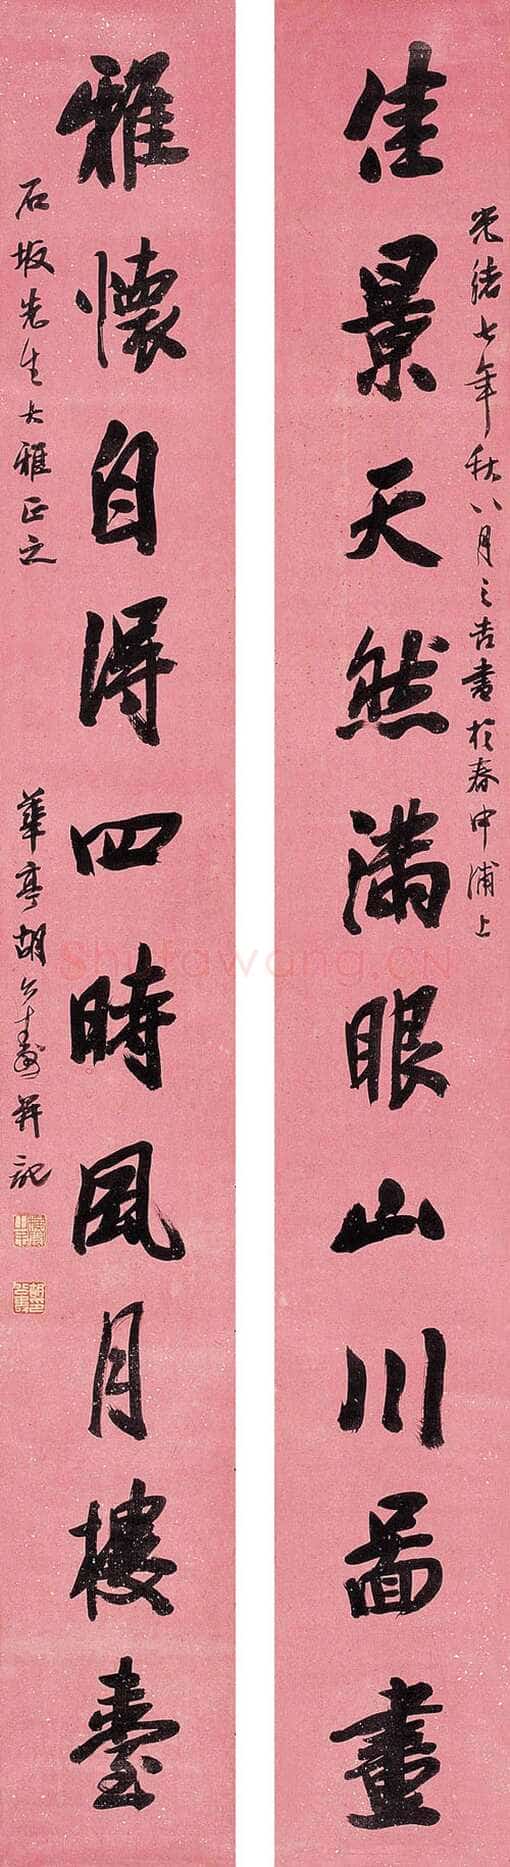 光緒七年秋八月之吉書於春申浦上
佳景天然滿眼山川啚畫
雅懷自得四時風月樓臺
石坂先生大雅正之
華亭胡公壽并記
Shufawang.CN